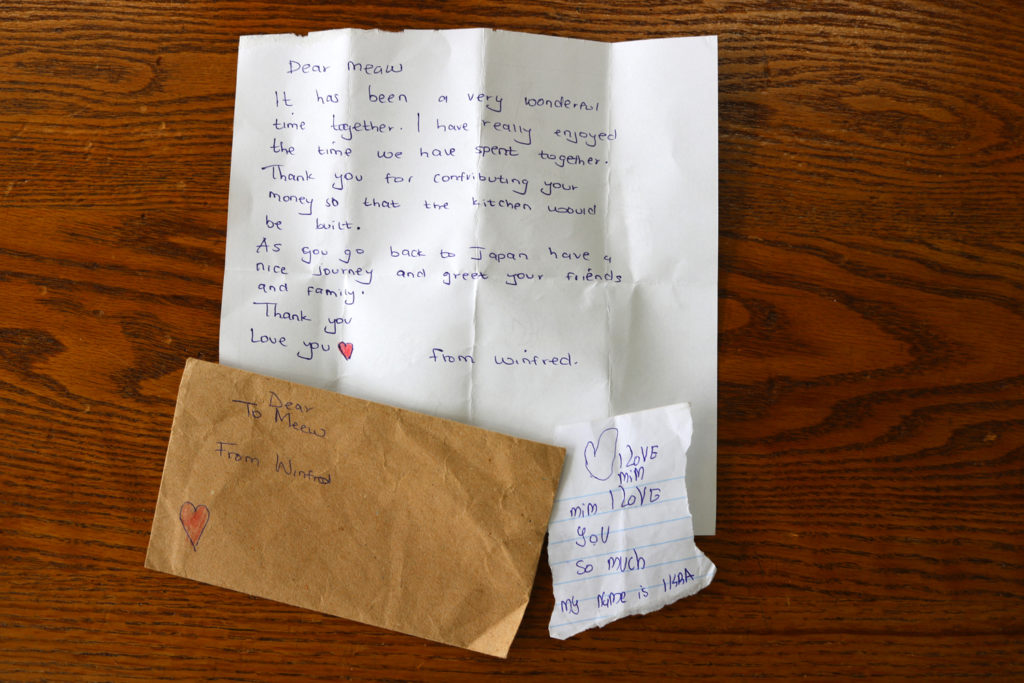 Dear Meaw
It has been a very wonderful
time together. I have really enjoyed
the time we have spent together.
Thank you for contributing your
money so that the kitchen would
be built.
As you go back to Japan have a
nice journey and greet your friends
and family.
Thank you
Love you
From Winfred.
Dear
To Meew
From Winfred
I LOVE
MiM
MiM I LOVE
YOU
So MUCH
My NAME is